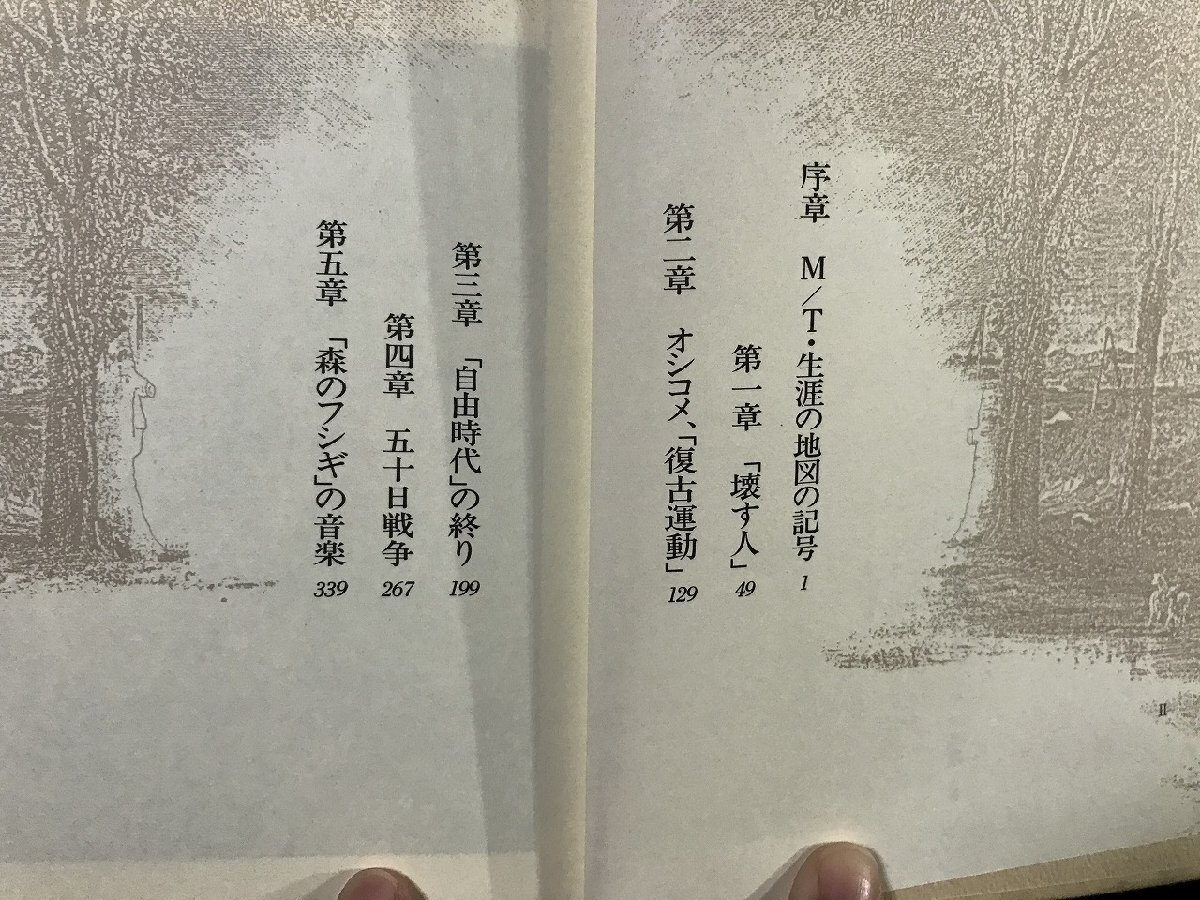 序章 M/T・生涯の地図の記号 1
第一章 「壊す人」 49
第二章 オシコメ、「復古運動」 129
第三章 「自由時代」の終り 199
第四章 五十日戦争 267
第五章 「森のフシギ」の音楽 339
II